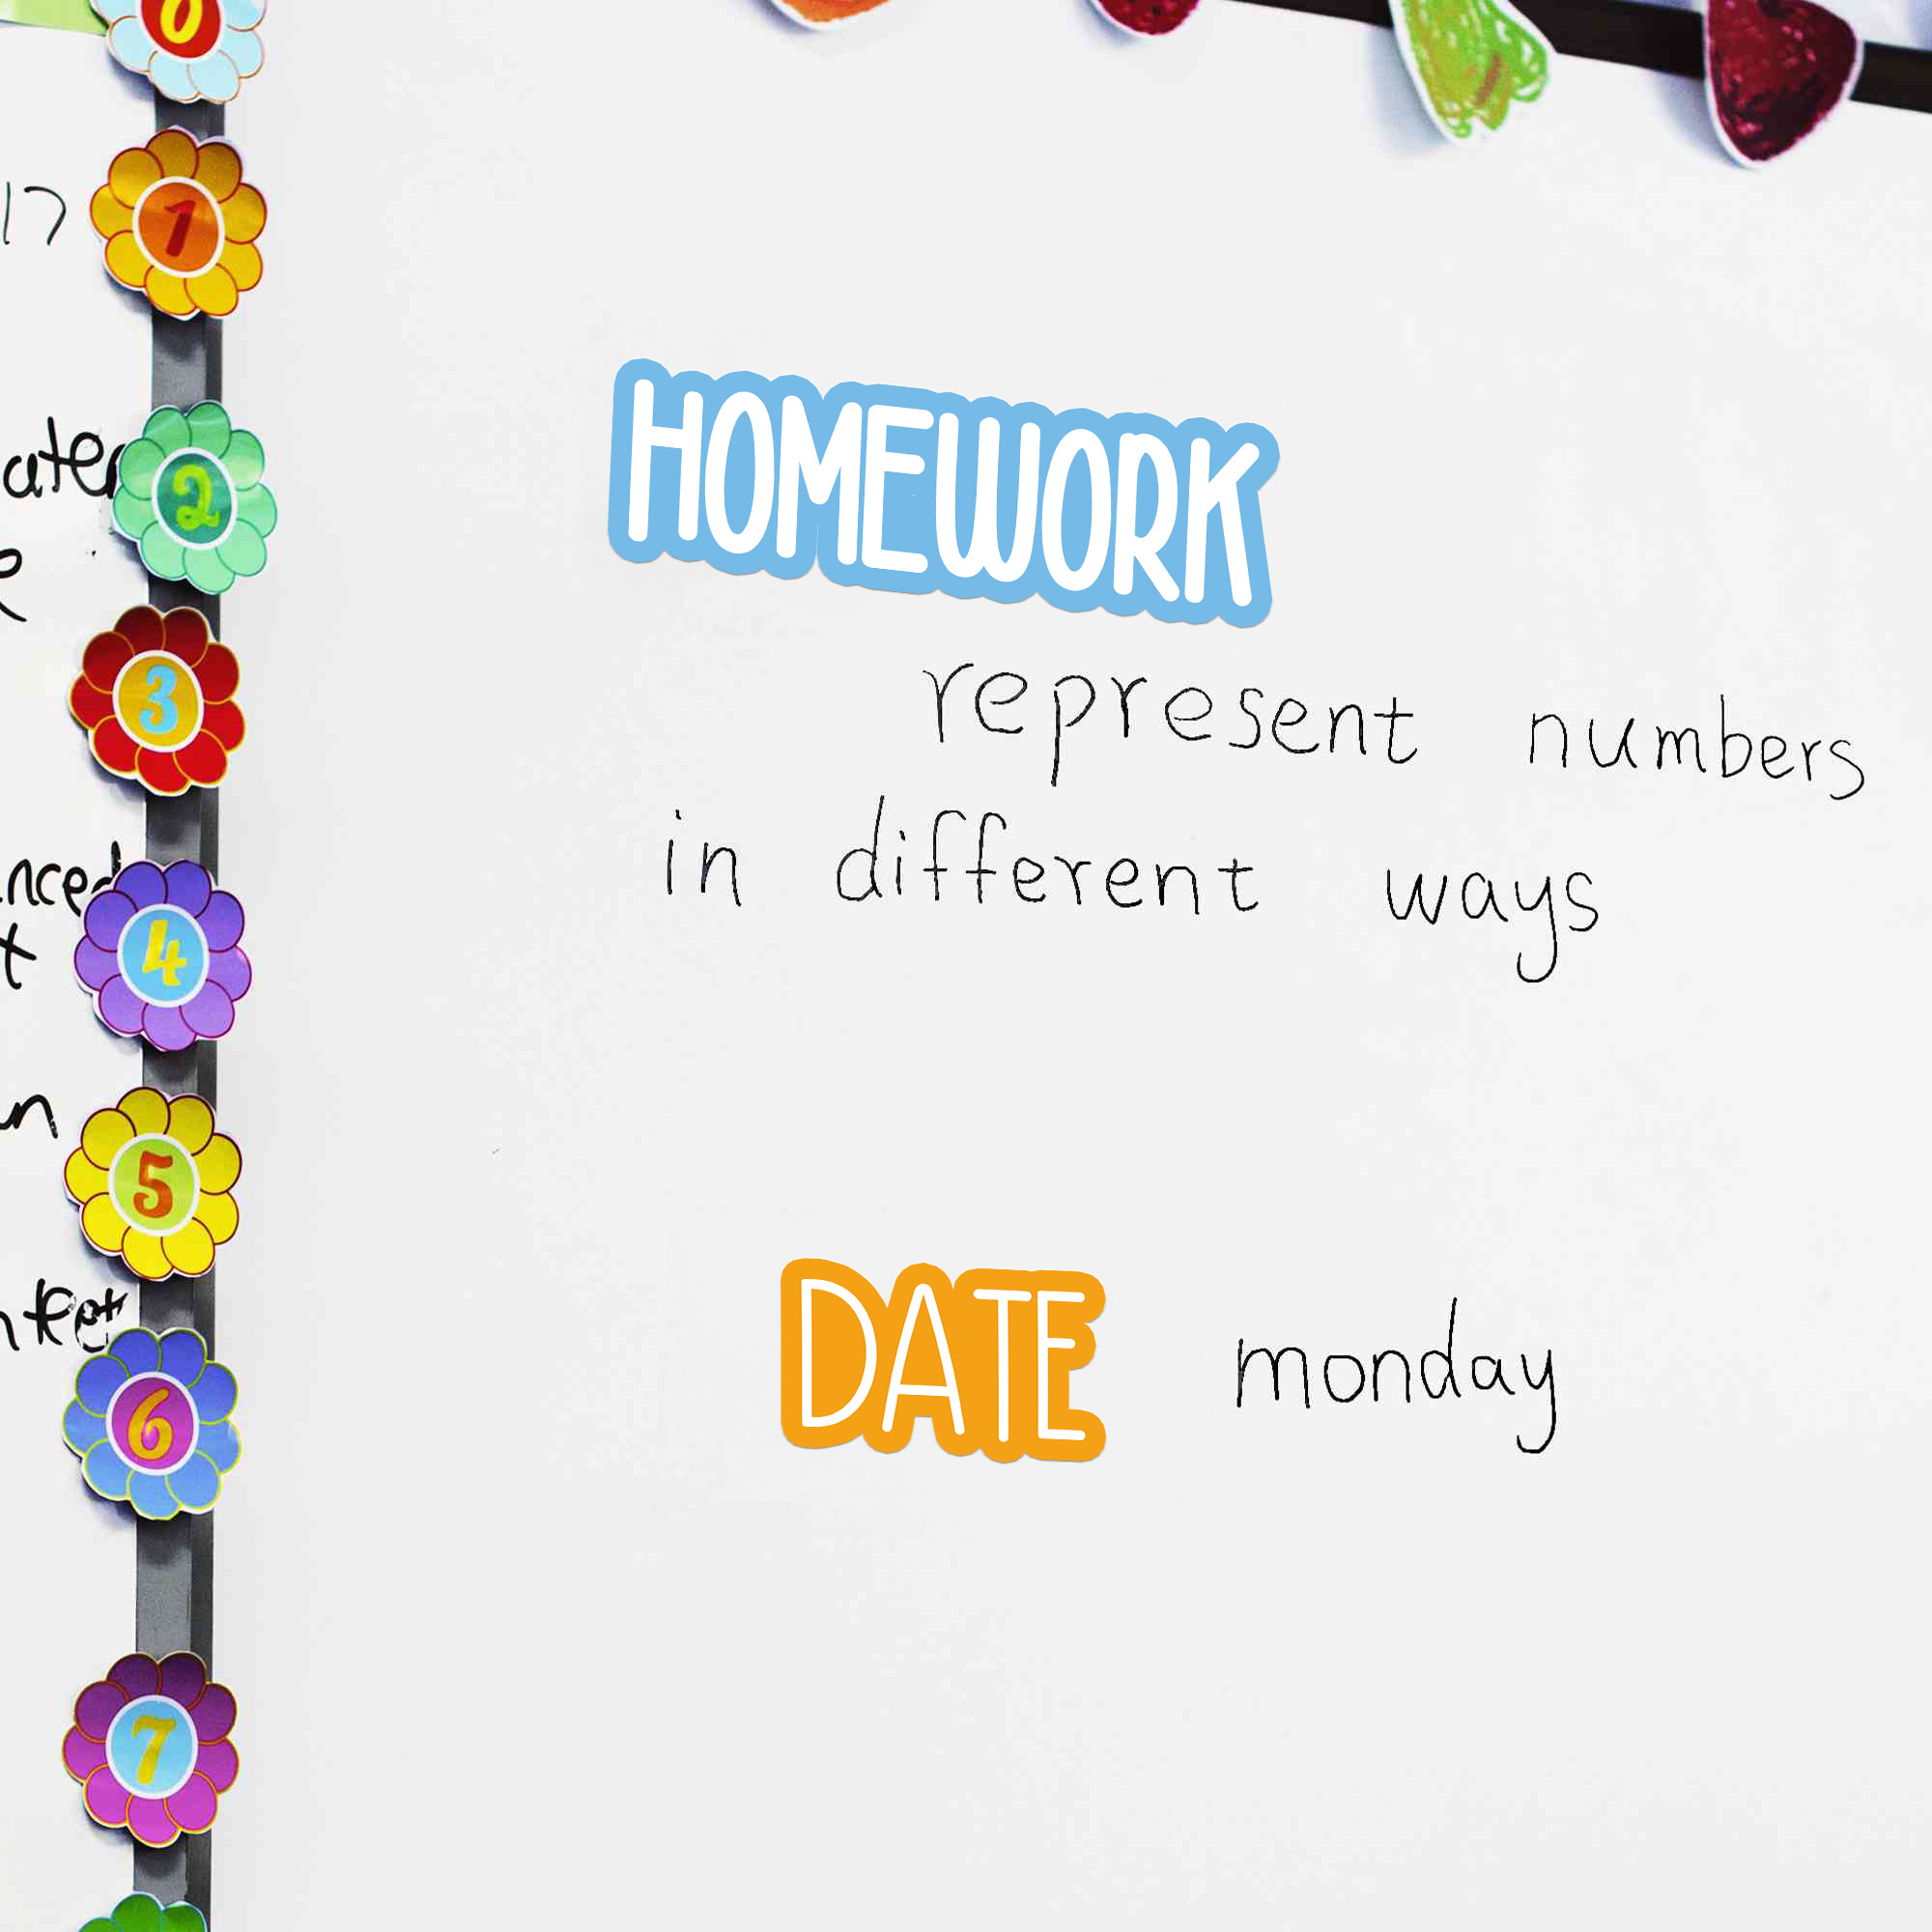 0
1
2
3
4
5
6
7
17
HOMEWORK
represent numbers
in different ways
DATE monday